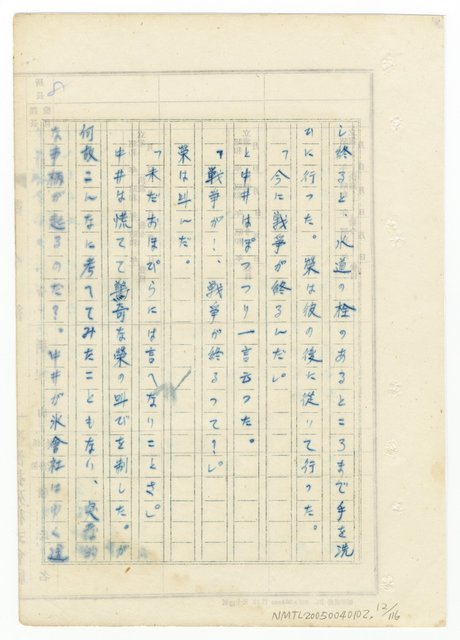 し終ると、水道の栓のあるところまで手を洗
ひに行った。榮は彼の後に従いて行った。
「今に戦爭が終るんだい」
と中井はぽつつり一言云つた。
「戦爭が！、戦爭が終るつて？」
榮は叫んだ。
「未だおほぴらには言へないことさ」
中井は慌てて驚奇な榮の叫びを制した。が
何故こんなに考へてみたこともない、突發的
な事柄が起るのだ？。中井が氷會社はゆく
8
NMTL20050040102. 12/116